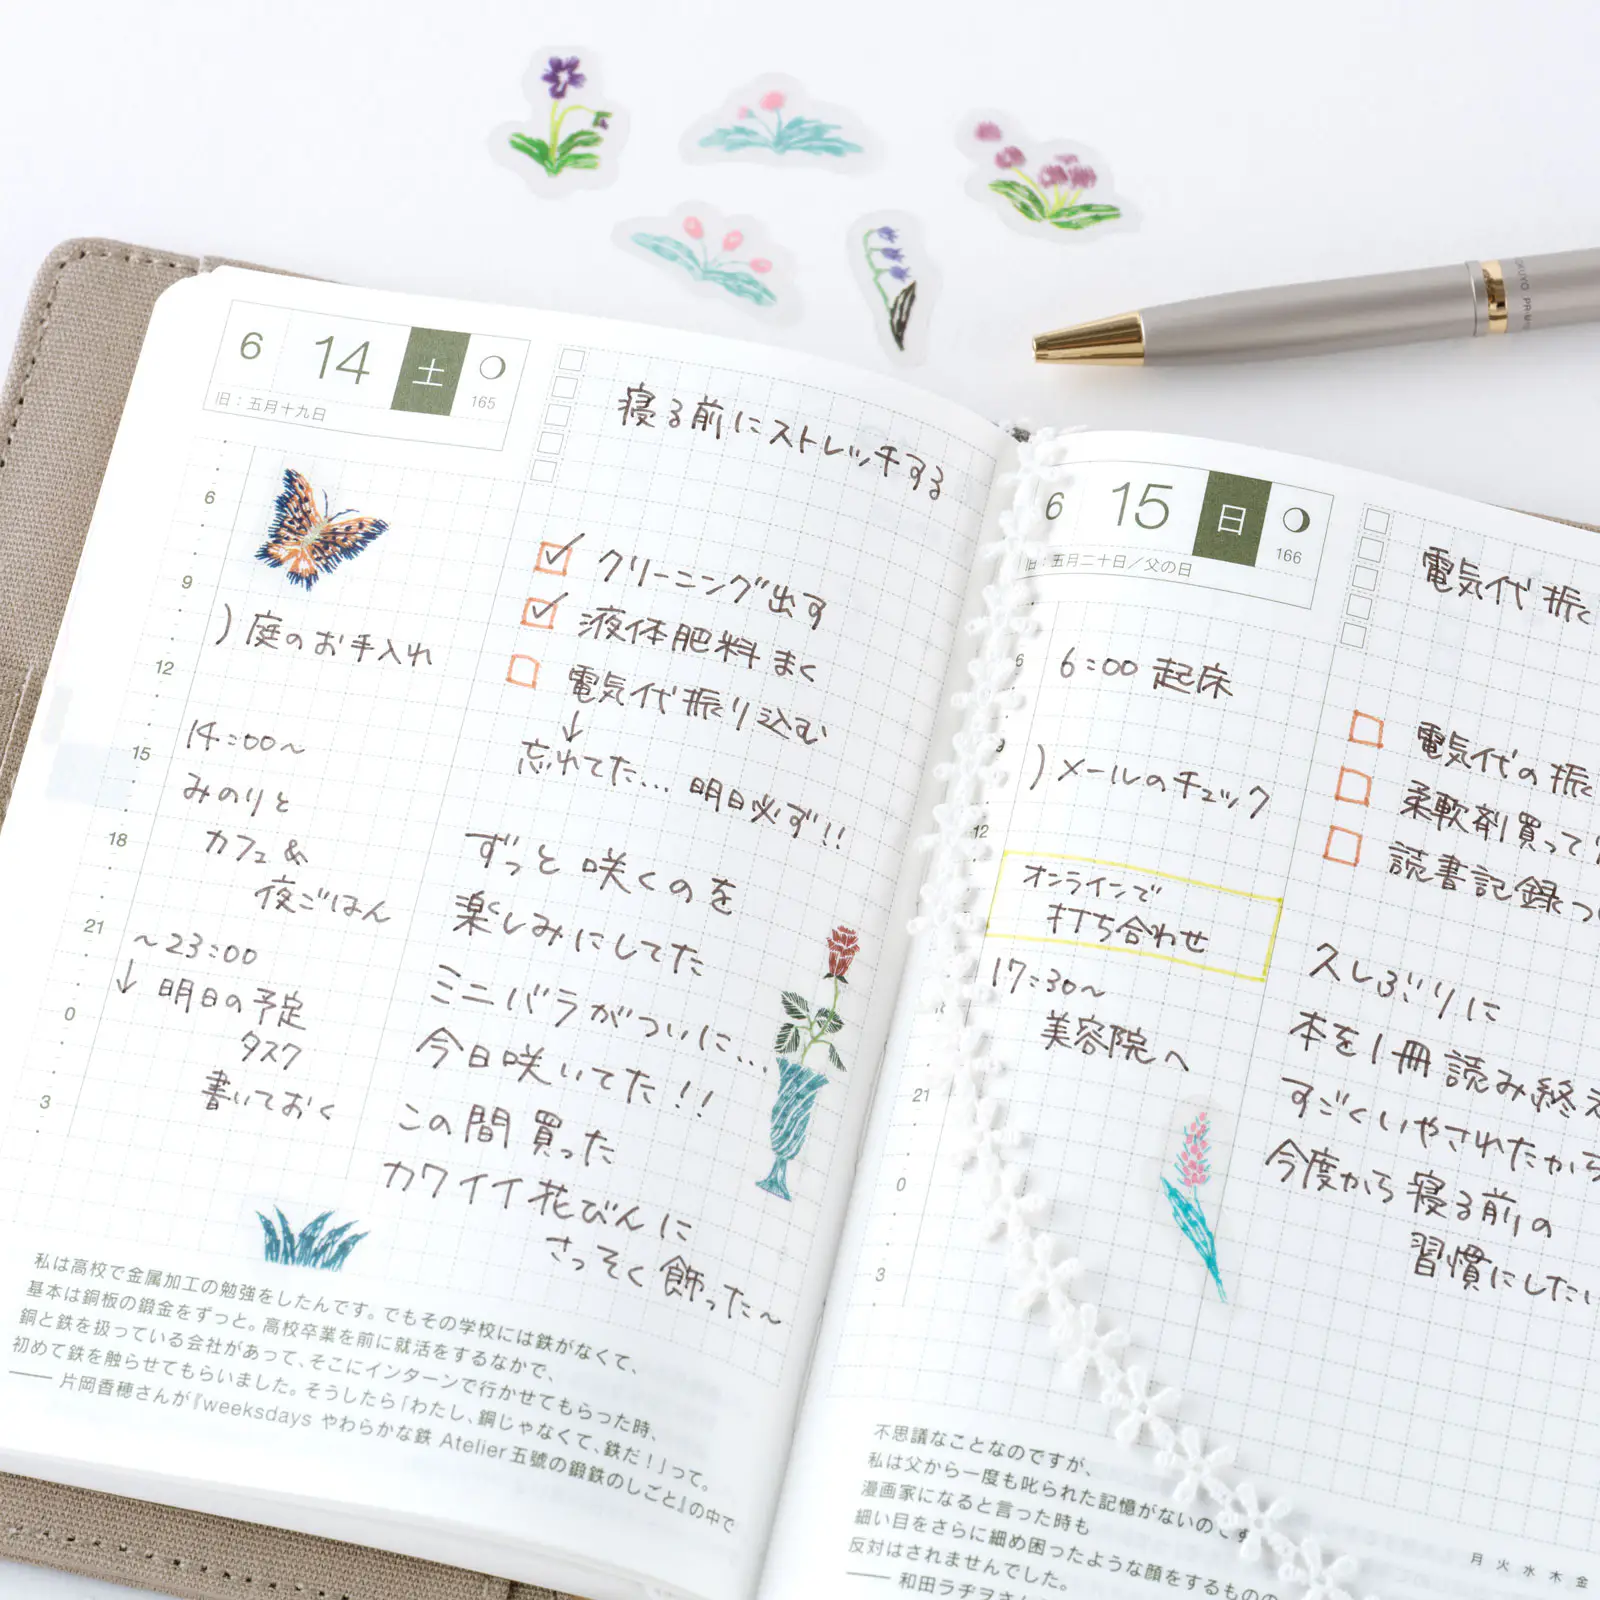 6 14 土
165
旧：五月十九日
寝る前にストレッチする
6
9
12
15
18
21
0
3
)庭のお手入れ
14:00〜
みのりと
カフェ&
夜ごはん
〜23:00
↓ 明日の予定
タスク
書いておく
クリーニング出す
液体肥料まく
電気代振り込む
↓
忘れてた… 明日必ず!!
ずっと咲くのを
楽しみにしてた
ミニバラがついに…
今日咲いてた!!
この間買った
カワイイ花びんに
さっそく飾った〜
私は高校で金属加工の勉強をしたんです。でもその学校には鉄がなくて、
基本は銅板の鍛金をずっと。高校卒業を前に就活をするなかで、
銅と鉄を扱っている会社があって、そこにインターンで行かせてもらった時、
初めて鉄を触らせてもらいました。そうしたら「わたし、銅じゃなくて、鉄だ！」って。
―― 片岡香穂さんが『weeksdays やわらかな鉄 Atelier五號の鍛鉄のしごと』の中で
6 15 日
166
旧：五月二十日／父の日
電気代振
6
9
12
21
0
3
6:00 起床
)メールのチェック
オンラインで
打ち合わせ
17:30〜
美容院へ
電気代の振
柔軟剤買って
読書記録つ
久しぶりに
本を1冊読み終え
すごくいやされたから
今度から寝る前の
習慣にしたい
不思議なことなのですが、
私は父から一度も叱られた記憶がないのです
漫画家になると言った時も
細い目をさらに細め困ったような顔をするものの
反対はされませんでした。
―― 和田ラヂヲさ
月 火 水 木 金